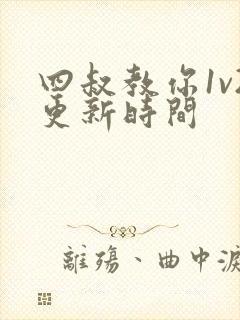 四叔教你1v2
更新時間
離殤、曲中淚